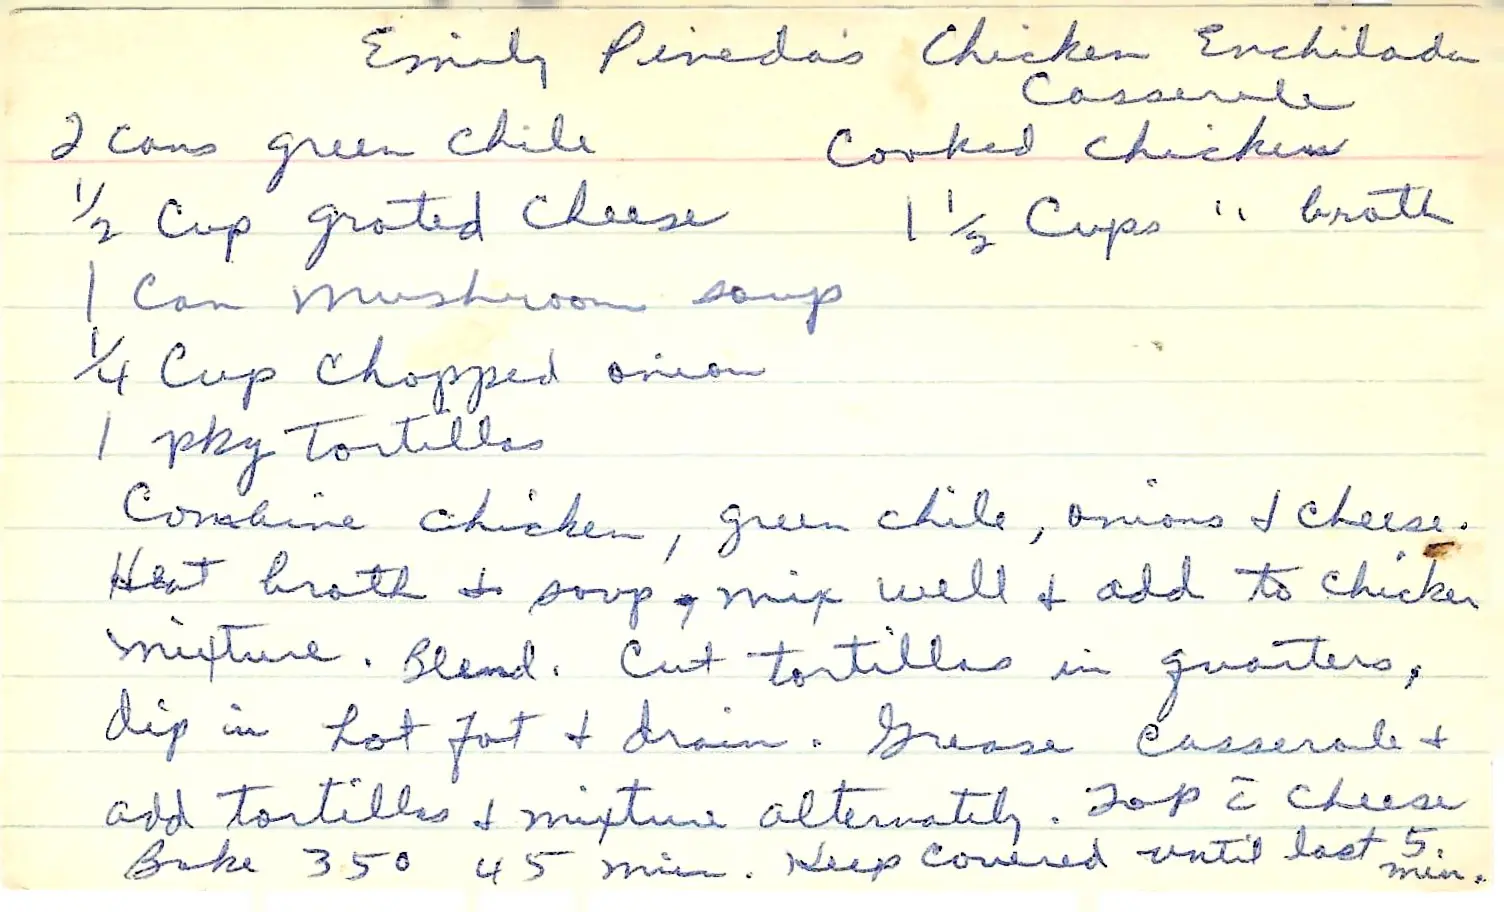 Emily Pineda's Chicken Enchilada
Casserole
2 cans green chile Cooked chicken
1/2 Cup grated cheese 1 1/2 Cups " broth
1 Can mushroom soup
1/4 Cup chopped onion
1 pkg Tortillas
Combine chicken, green chile, onions & cheese.
Heat broth & soup, mix well & add to chicken
mixture. Blend. Cut tortillas in quarters,
dip in hot fat & drain. Grease casserole &
add tortillas & mixture alternately. Top c̄ cheese
Bake 350 45 min. Keep covered until last 5
min.